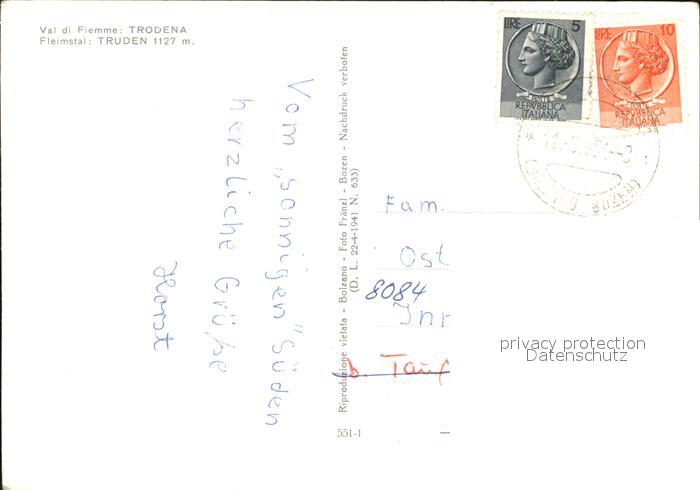 Val di Fiemme: TRODENA
Fleimstal: TRUDEN 1127 m.
Vom "sonnigen" Süden
herzliche Grüße
Horst
Riproduzione vietata - Bolzano - Foto Fränzl - Bozen - Nachdruck verboten
(D. L. 22-4-1941 N. 633)
551-1
LIRE 5
POSTE
REPVBBLICA
ITALIANA
LIRE 10
POSTE
REPVBBLICA
ITALIANA
Fam.
Ost
8084
Inr
b. Tauf
privacy protection
Datenschutz